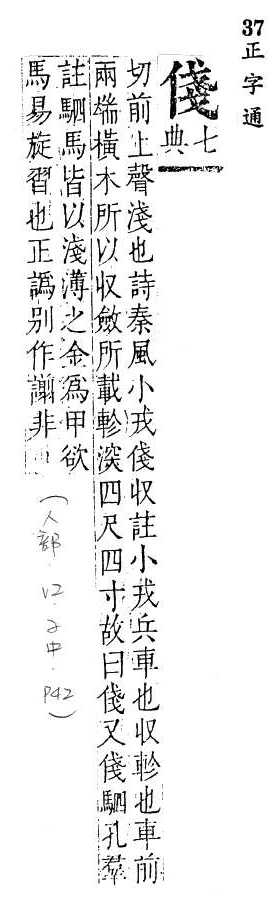 37正字通
俴七典
切前上聲淺也詩秦風小戎俴收註小戎兵車也收軫也車前
兩端橫木所以收斂所載軫深四尺四寸故曰俴又俴駟孔羣
註駟馬皆以淺薄之金爲甲欲
馬易旋習也正譌別作諓非
(人部.12.子中.P42)